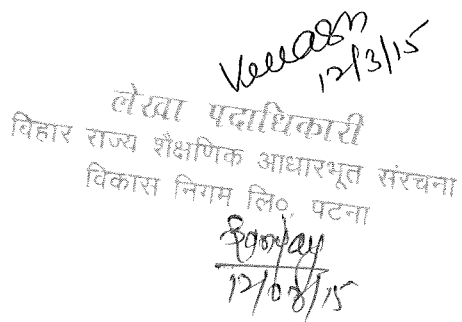 12/3/15
लेखा पदाधिकारी
बिहार राज्य शैक्षणिक आधारभूत संरचना
विकास निगम लि०, पटना
Sanjay
12/03/15